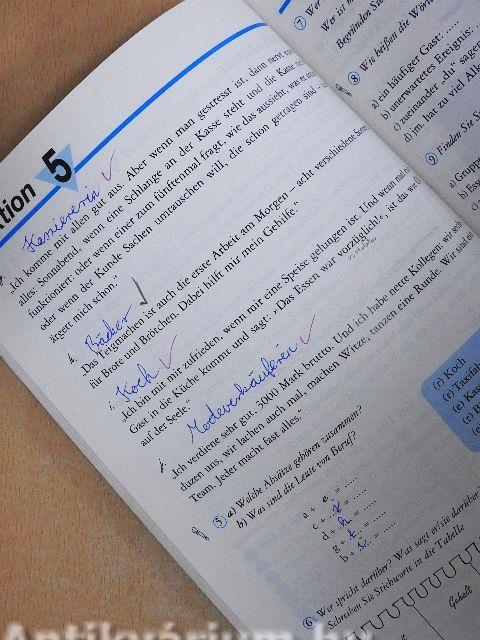 5
Kassiererin
Ich komme mit allen gut aus. Aber wenn man gestresst ist, dann nervt
alles: Sonnabend, wenn eine Schlange an der Kasse steht und die Kasse
funktioniert; oder wenn einer zum fünftenmal fragt, wie das aussieht, was er
oder wenn der Kunde Sachen umtauschen will, die schon getragen sind -
ärgert mich schon."
Bäcker
Das Teigmachen ist auch die erste Arbeit am Morgen – acht verschiedene
für Brote und Brötchen. Dabei hilft mir mein Gehilfe."
i. Koch
„Ich bin mit mir zufrieden, wenn mir eine Speise gelungen ist. Und wenn
Gast in die Küche kommt und sagt: »Das Essen war vorzüglich!«, ist das
auf der Seele."
j. Modeverkäuferin
„Ich verdiene sehr gut, 5000 Mark brutto. Und ich habe nette Kollegen: wir
duzen uns, wir lachen auch mal, machen Witze, tanzen eine Runde. Wir sind
Team. Jeder macht fast alles."
⑤ a) Welche Absätze gehören zusammen?
b) Was sind die Leute von Beruf?
a + e = ......
c + j = ......
d + h = ......
g + f = ......
b + i = ......
⑥ Wer spricht darüber? Was sagt er/sie darüber?
Schreiben Sie Stichworte in die Tabelle
Gehalt
(r) Koch
(r)
(e)
(r)
(e)
⑦ Wer
Wer ist
Begründen Sie
⑧ Wie heißen die
a) ein häufiger Gast:
b) unerwartetes Ereignis:
c) zueinander „du" sagen
d) jm. hat zu viel
⑨ Finden Sie
a)
b)
c)
d)
Antikvárium.hu